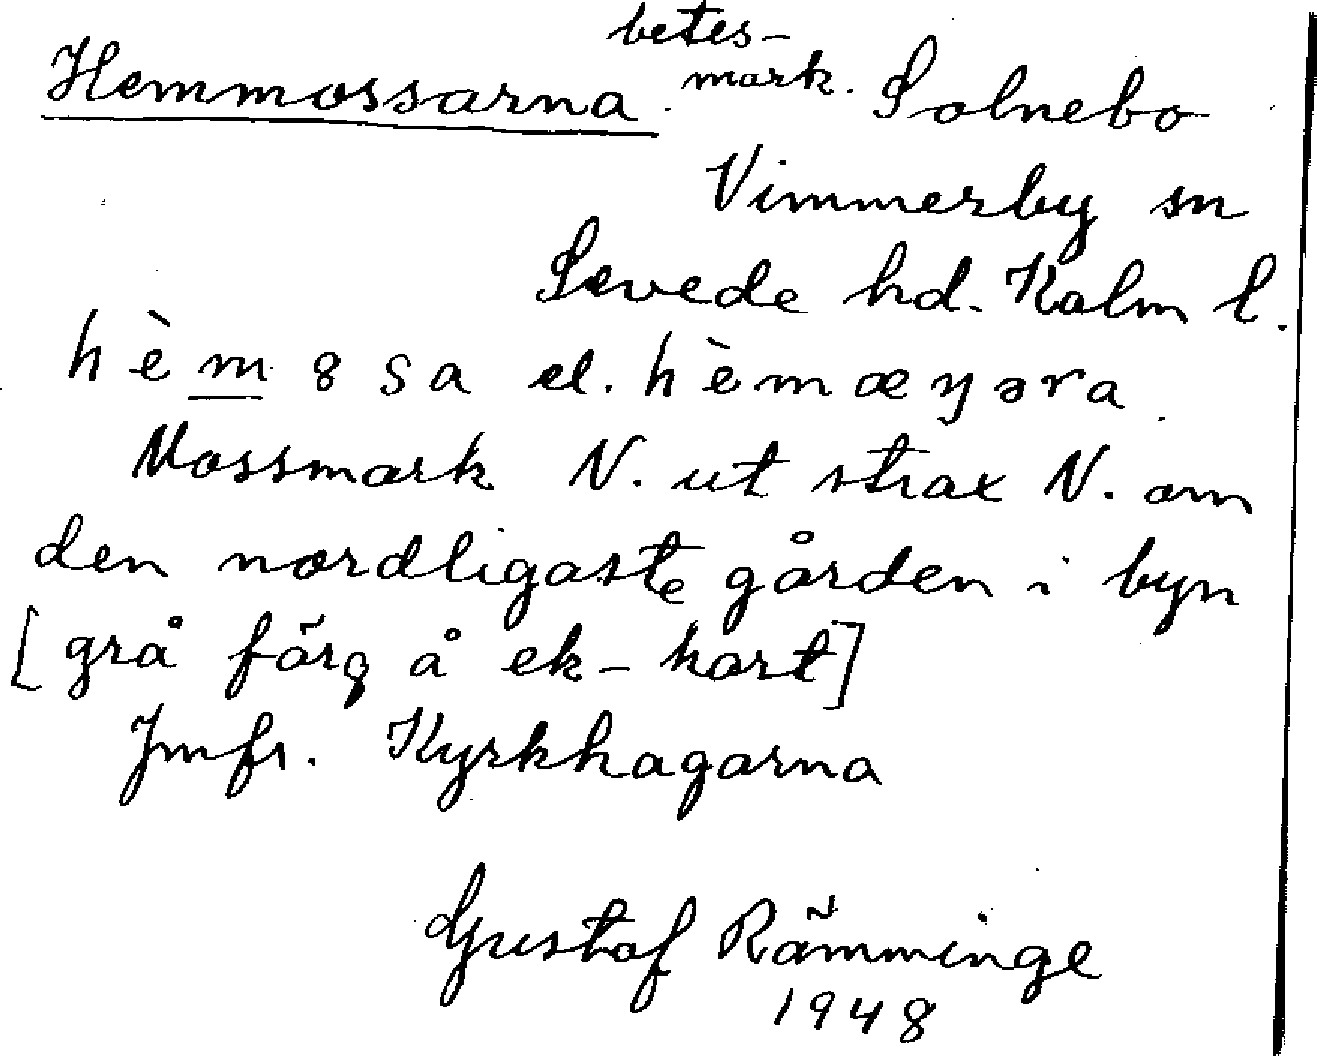 Hemmossarna betes-
mark. Solnebo
Vimmerby sn
Sevede hd. Kalm l.
hèm8sa el. hèmæŋəra
Mossmark N. ut strax N. om
den nordligaste gården i byn
[grå färg å ek-kart]
Jmfr. Kyrkhagarna
Gustaf Rämminge
1948